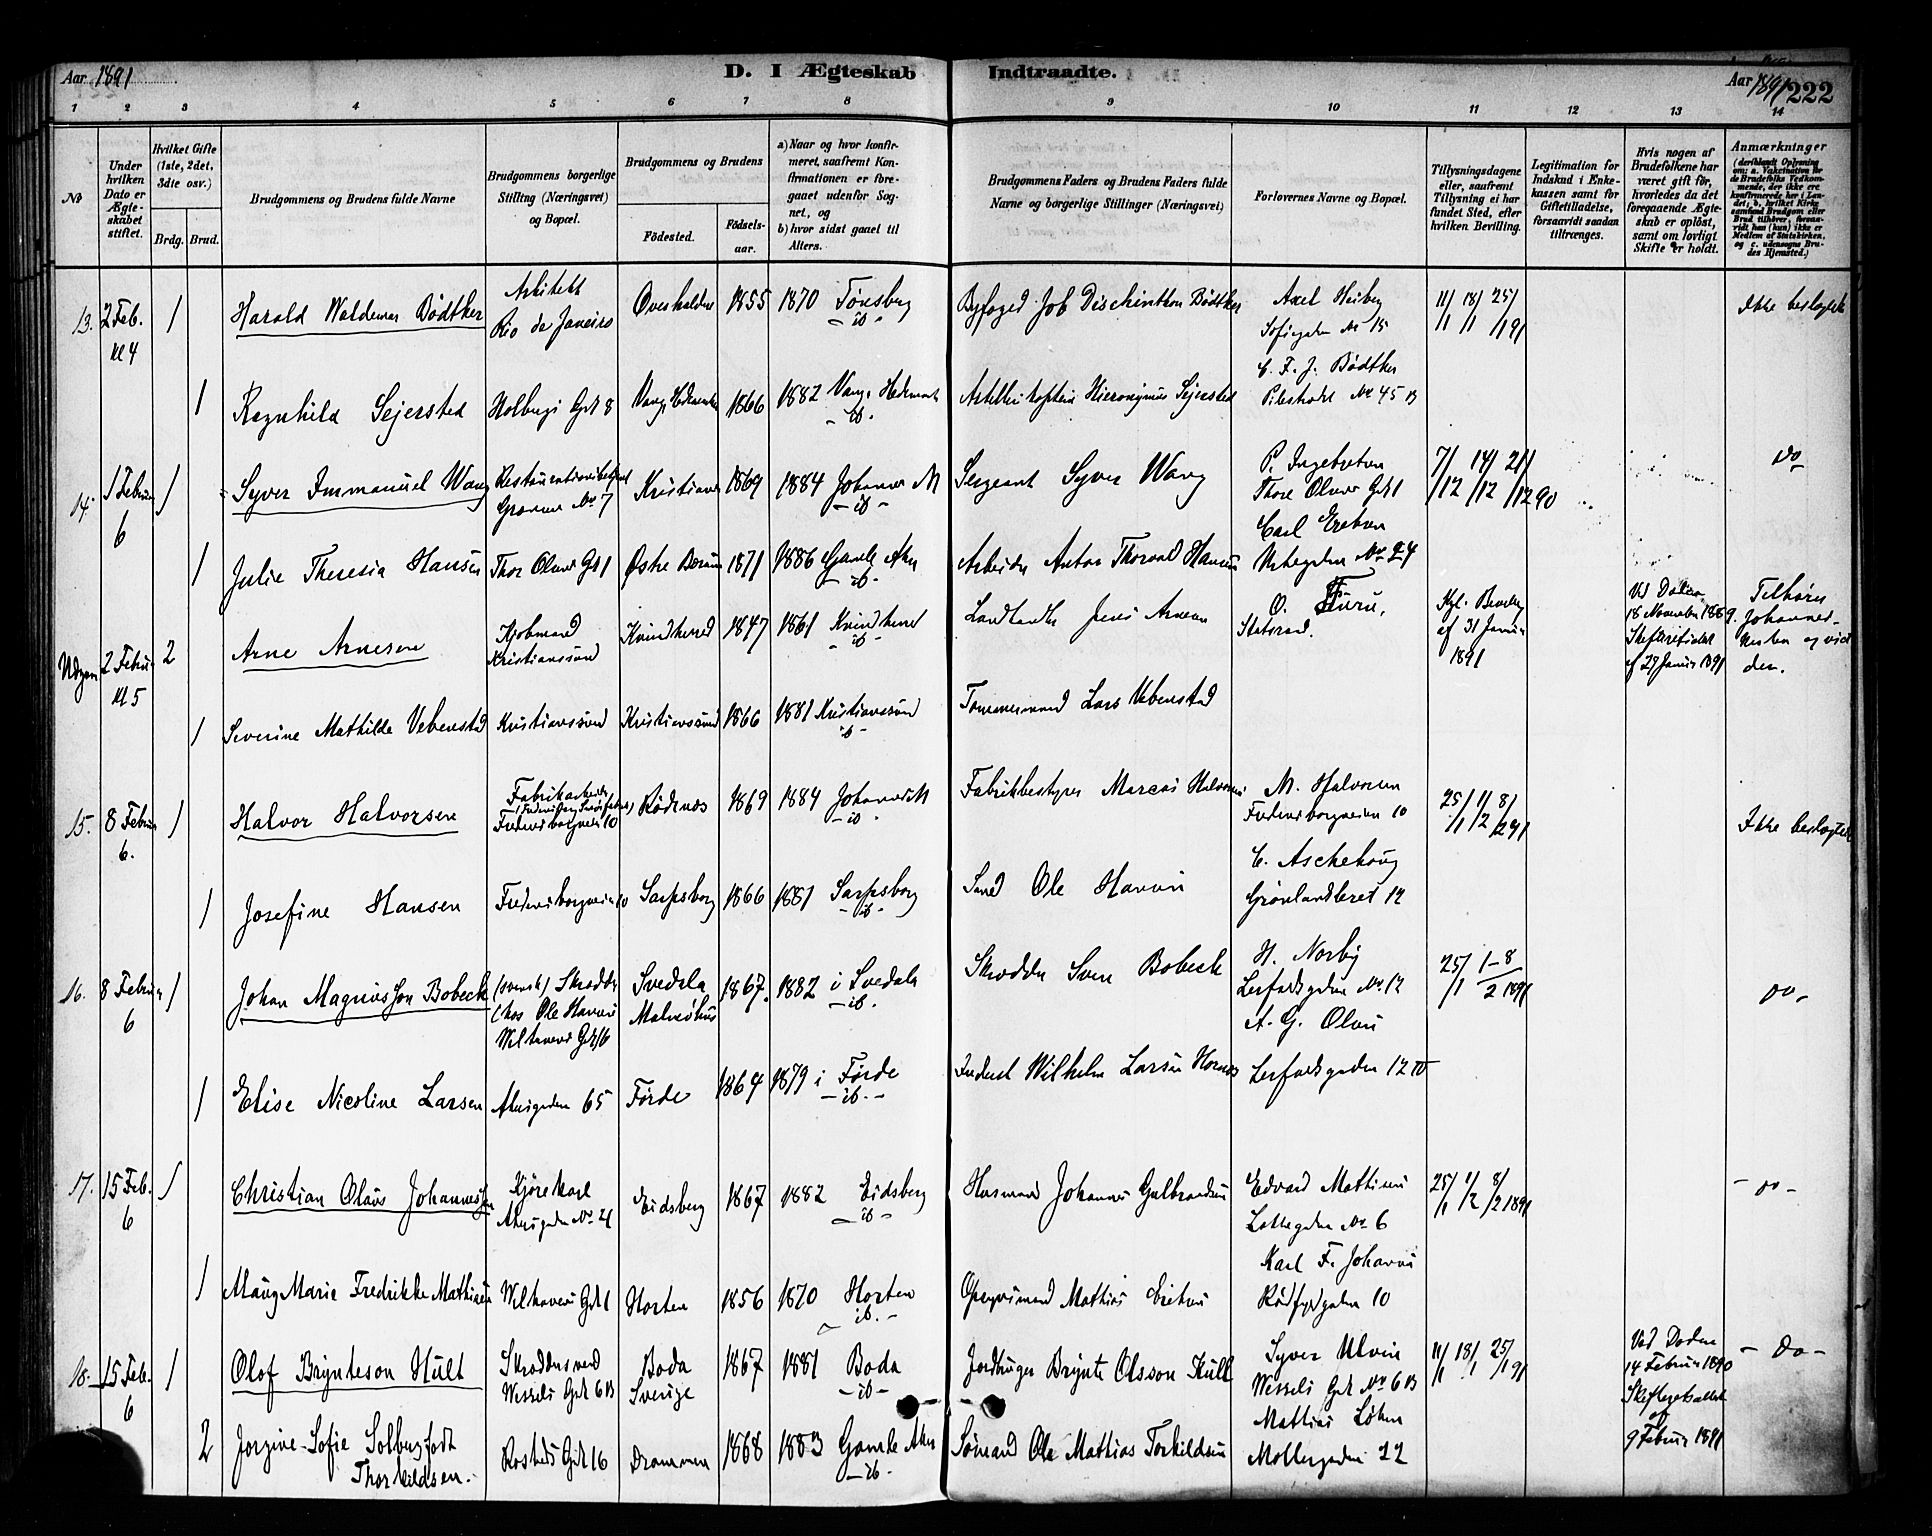 Aar 1891
D. I Ægteskab Indtraadte.
Aar 1891 222
1 2 3 4 5 6 7 8 9 10 11 12 13 14
No
Under hvilken Dato er Ægteskabet stiftet.
Hvilket Gifte (1ste, 2det, 3die osv.)
Brdg. Brud.
Brudgommens og Brudens fulde Navne
Brudgommens borgerlige Stilling (Næringsvei) og Bopæl.
Brudgommens og Brudens
Födested.
Födselsaar.
a) Naar og hvor konfirmeret, saafremt Konfirmationen er foregaaet udenfor Sognet, og
b) hvor sidst gaaet til Alters.
Brudgommens Faders og Brudens Faders fulde Navne og borgerlige Stillinger (Næringsvei)
Forlovernes Navne og Bopæl.
Tillysningsdagene eller, saafremt Tillysning ei har fundet Sted, efter hvilken Bevilling.
Legitimation for Indskud i Enkekassen samt for Giftetilladelse, forsaavidt saadan tiltrænges.
Hvis nogen af Brudefolkene har været gift för, hvorledes da det foregaaende Ægteskab er oplöst, samt om lovligt Skifte er holdt.
Anmærkninger
13. 2 Feb. Kl 4 1 Harald Waldemar Bödtker Arkitekt Rio de Janeiro Overhalden 1855 1870 Tönsberg - ib - Byfoged Job Dischinthon Bödtker Axel Heiberg Sofiegaden No 15 11/1 18/1 25/1 91 Ikke beslægtet
1 Ragnhild Sejersted Holbergs Gd 8 Vang, Hedemarken 1866 1882 Vang, Hedemark - ib - Artilleri Kaptein Hieronymus Sejersted C. F. J. Bödtker Pilestrædet No 45 B
14. 1 Februar 6 1 Syver Immanuel Wang Grændsen No 7 Kristiania 1869 1884 Johannes M - ib - Sergeant Syver Wang P. Ingebretsen Thor Olsens Gd 1 7/12 14/12 21/12 90 Do
1 Julie Theresia Hansen Thor Olsens Gd 1 Østre Bærum 1871 1886 Gamle Aker - ib - Arbeider Anton Thorvald Hansen Carl Eretsen Urtegaden No 24
Udgaar 2 Februar Kl 5 2 Arne Arnesen Kjøbmand Kristianssund Kvindherred 1847 1861 Kvindherred - ib - Landhandler Jens Arnesen O. Furu, Statsraad. Kgl. Bevilling af 31 Januar 1891 Ved Døden 18 November 1889. Skifteretsattest af 29 Januar 1891 Tilhører Johannes- kirken og vied der.
1 Severine Mathilde Vebenstad Kristianssund Kristianssund 1866 1881 Kristianssund - ib - Tømmermand Lars Vebenstad
15. 8 Februar 6. 1 Halvor Halvorsen Fabrikarbeider Fredensborgveien 10 Rödenæs 1869 1884 Johannes M - ib - Fabrikbestyrer Marcus Halvorsen M. Halvorsen Fredensborgveien 10 25/1 1/2 8/2 91 Ikke beslægtet
1 Josefine Hansen Fredensborgveien 10 Sarpsborg 1866 1881 Sarpsborg - ib - Smed Ole Hansen C. Aschehoug Grönlandsleret 12
16. 8 Februar 6 1 Johan Magnusson Bobeck (svensk) Skrædder (hos Ole Hansen Welhavens Gd 16 Svedala Malmöhus 1867. 1882 i Svedala - ib - Skrædder Sven Bobeck H. Norby Lerfaldsgaden No. 12 25/1 1-8/2 1891 Do.
1 Elise Nicoline Larsen Akersgaden 65 Førde 1864 1879 i Førde - ib. - Frederik Wilhelm Larsen Hornes A. G. Olsen Lerfaldsgaden 12 IV
17. 15 Feb. 6 1 Christian Olaus Johannessen Kjørekarl Akersgaden No 21 Eidsberg 1867 1882 Eidsberg - ib - Husmand Johannes Gulbrandsen Edvard Mathisen Lakkegaden No 6 25/1 1/2 8/2 1891 - Do -
1 Maug Marie Fredrikke Mathisen Welhavens Gd 1 Horten 1856 1870 Horten - ib. - Opsynsmand Mathias Eretsen Karl F. Johansen Rødfyldgaden 10
18. 15 Feb. 6 1 Olof Brynteson Hult Skræddersvend Wessels Gd 6 B Boda Sverige 1867 1881 Boda - ib - Jordbruger Brynte Olsson Hult Syver Ulven Wessels Gd No 6 B 11/1 18/1 25/1 91 Ved Døden 14 Februar 1890 Skifteretsattest af 9 Februar 1891 - Do -
2 Jorgine Sofie Solberg født Thorkildsen. Rosteds Gd 16 Drammen 1868 1883 Gamle Aker - ib. Sømand Ole Mathias Torkildsen Mathias Løken Møllergaden 12